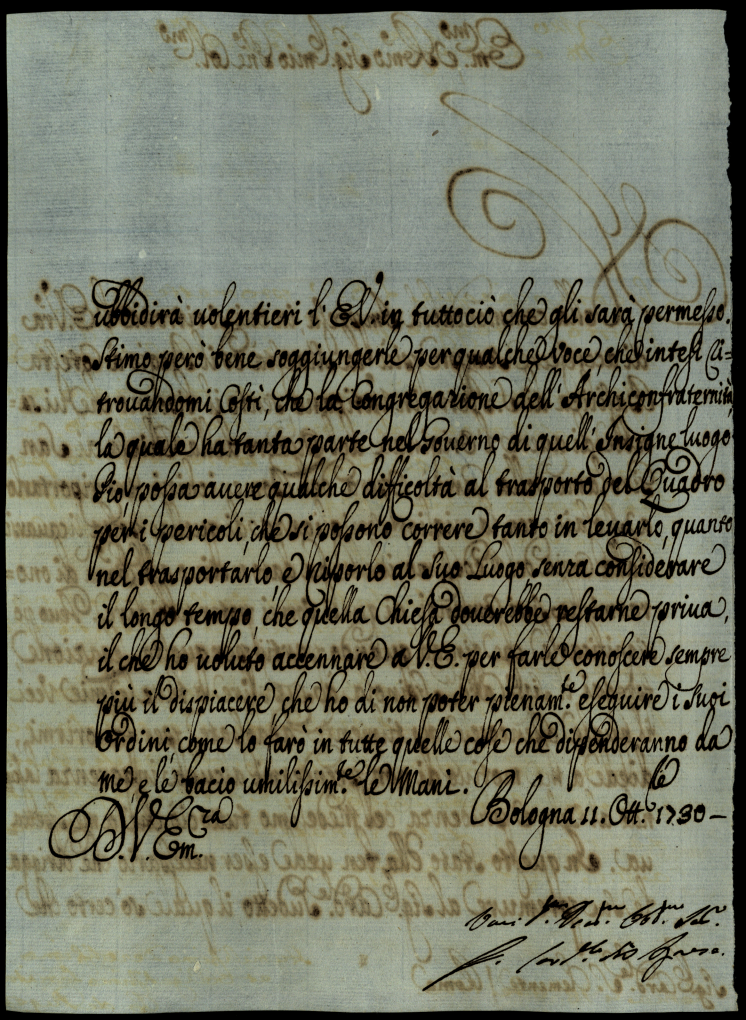 ubbidirà volentieri l'E.V. in tuttociò che gli sarà permesso.
Stimo però bene soggiungerle per qualche Voce, che intesi Ri=
trovandomi Costì, che la Congregazione dell'Archiconfraternità
la quale ha tanta parte nel Governo di quell'Insigne Luogo
Pio, possa avere qualche difficoltà al trasporto del Quadro
per i pericoli, che si possono correre tanto in levarlo, quanto
nel trasportarlo, e riporlo al Suo Luogo, senza considerare
il longo tempo, che quella Chiesa dovrebbe restarne priva,
il che ho voluto accennare a V.E. per farle conoscere sempre
più il dispiacere che ho di non poter pienam.te eseguire i Suoi
Ordini, come lo farò in tutte quelle cose che dipenderanno da
me, e le bacio umilissim.te le Mani.
Bologna 11. Ott.bre 1730 –
D. V. Em.za